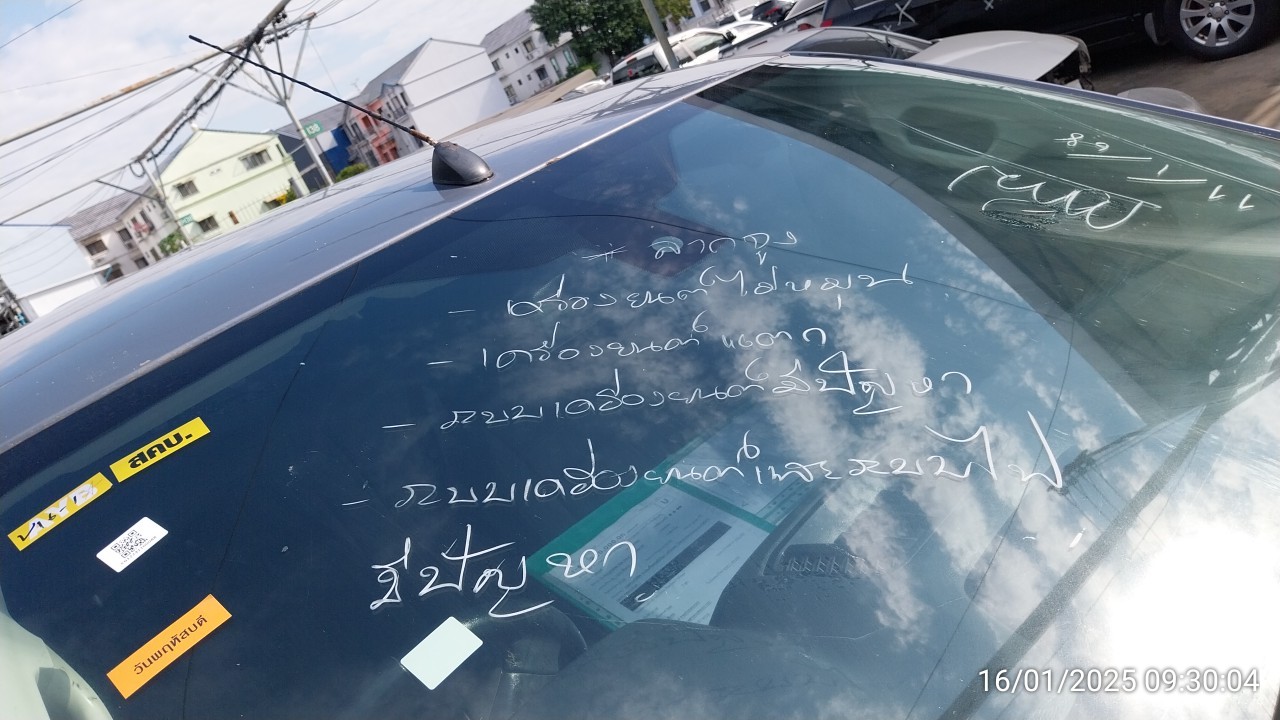 138
* ลากจูง
- เครื่องยนต์ไม่หมุน
- เครื่องยนต์แตก
- ระบบเครื่องยนต์มีปัญหา
- ระบบเครื่องยนต์และระบบไฟ
มีปัญหา
สคบ.
วันพฤหัสบดี
16/01/2025 09:30:04